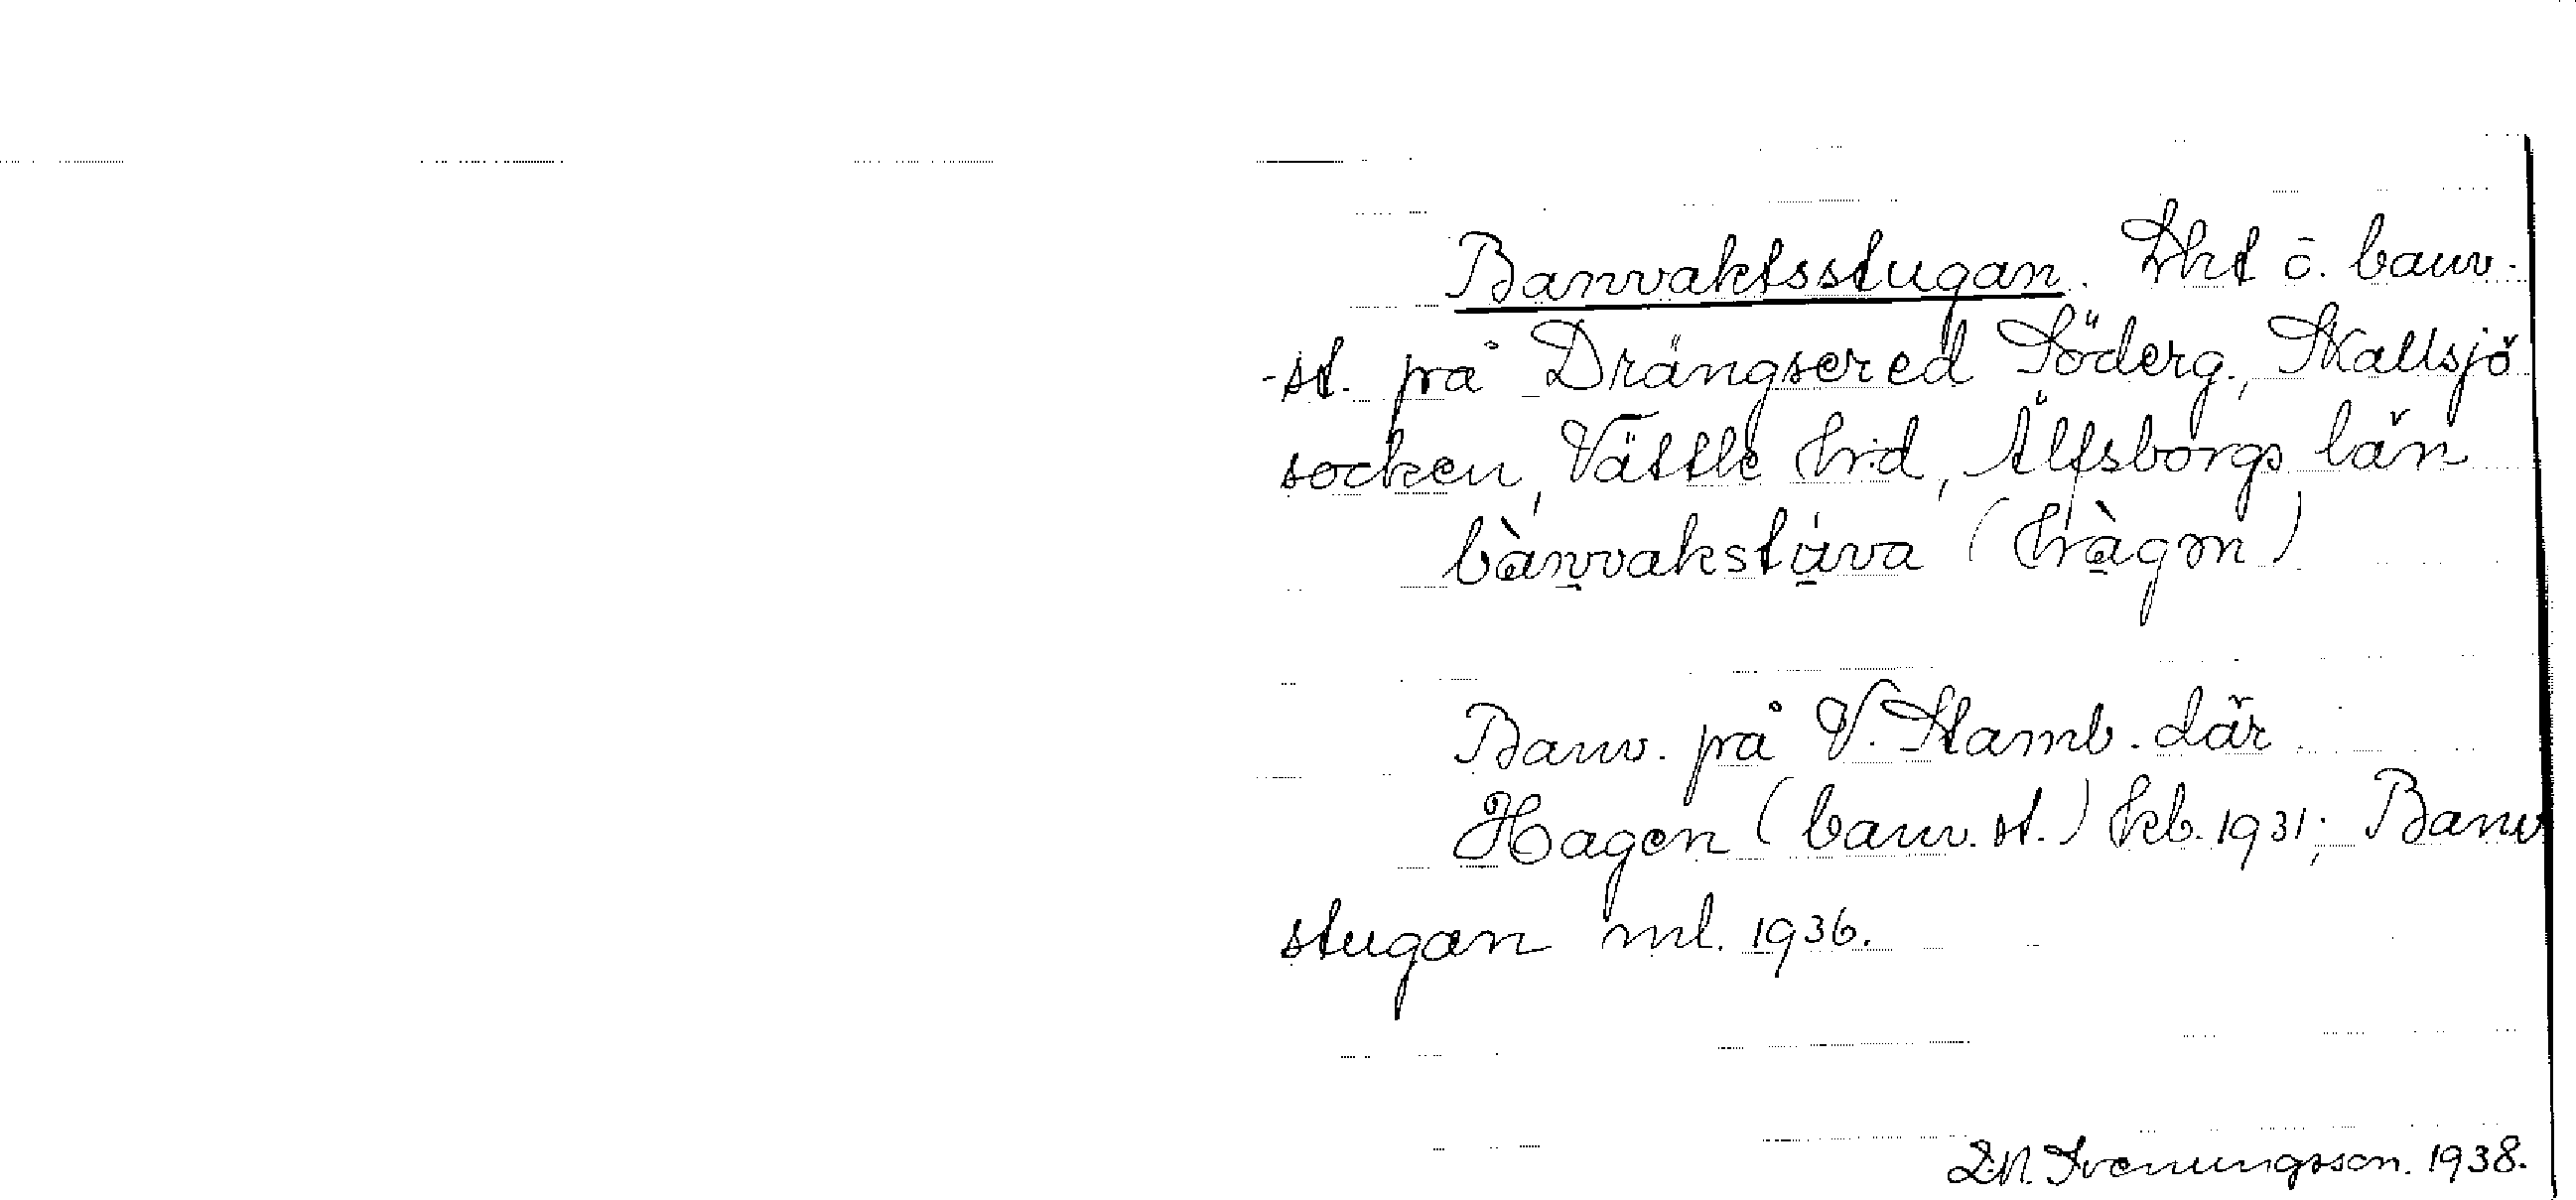 Banvaktsstugan. Lht o. banv.
-st. på Drängsered Söderg., Skallsjö
socken, Vättle hrd, Älfsborgs län
bànvakstúva (hàgən)
Banv. på V. Stamb. där
Hagen (banv. st.) kb. 1931; Banv
stugan ml. 1936.
Sveningsson. 1938.